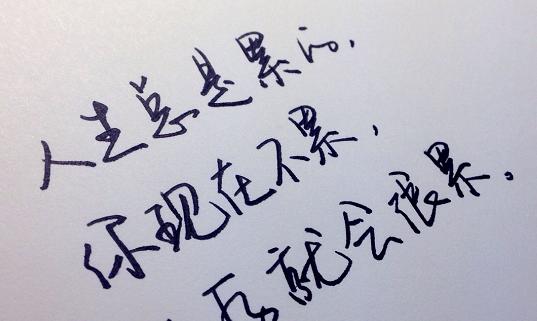 人生总是累的，
你现在不累，
后就会很累。